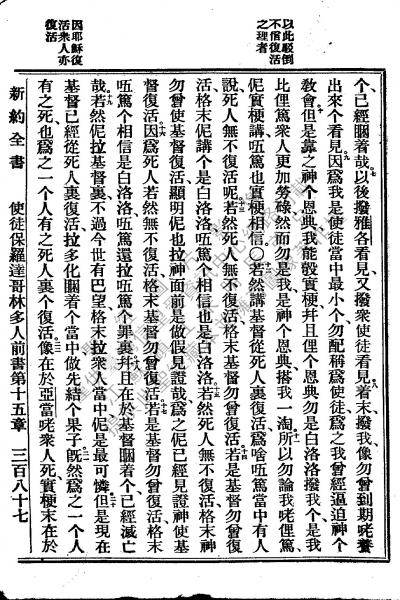 以此駁倒
不信復活
之理者
因耶穌復
活衆人亦
復活
个已經瞓着哉以後撥雅各看見又撥衆使徒看見着末撥我像勿曾到期咾養
出來个看見因爲我是使徒當中最小个勿配稱爲使徒爲之我曾經逼迫神个
敎會但是靠之神个恩典我能彀實梗幷且俚个恩典勿是白洛洛撥我个是我
比俚篤衆人更加勞碌然而勿是我是神个恩典搭我一淘所以勿論我咾俚篤
伲實梗講㕶篤也實梗相信〇若然講基督從死人裏復活爲啥㕶篤當中有人
說死人無不復活呢若然死人無不復活格末基督勿曾復活若是基督勿曾復
活格末伲講个是白洛洛㕶篤个相信也是白洛洛若然死人無不復活格末神
勿曾使基督復活顯明伲也拉神面前是做假見證哉爲之伲已經見證神使基
督復活因爲死人若然無不復活格末基督勿曾復活若是基督勿曾復活格末
㕶篤个相信是白洛洛㕶篤還拉㕶篤个罪裏幷且在於基督瞓着个已經滅亡
哉若然伲拉基督裏不過今世有巴望格末拉衆人當中伲是最可憐但是現在
基督已經從死人裏復活拉多化瞓着个當中做先結个果子旣然爲之一个人
有之死也爲之一个人有之死人裏个復活像在於亞當咾衆人死實梗末在於
新約全書 使徒保羅達哥林多人前書第十五章 三百八十七